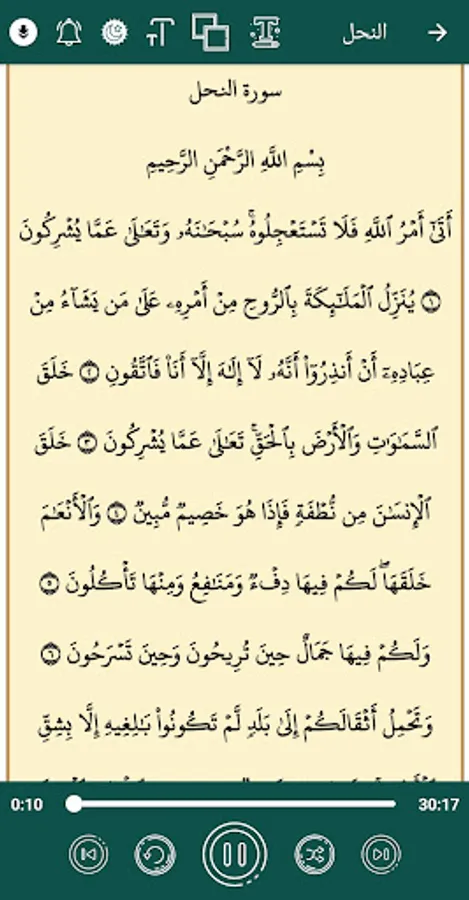 النحل
سورة النحل
بِسْمِ اللَّهِ الرَّحْمَٰنِ الرَّحِيمِ
أَتَىٰٓ أَمْرُ ٱللَّهِ فَلَا تَسْتَعْجِلُوهُۚ سُبْحَٰنَهُۥ وَتَعَٰلَىٰ عَمَّا يُشْرِكُونَ
١ يُنَزِّلُ ٱلْمَلَٰٓئِكَةَ بِٱلرُّوحِ مِنْ أَمْرِهِۦ عَلَىٰ مَن يَشَآءُ مِنْ
عِبَادِهِۦٓ أَنْ أَنذِرُوٓا۟ أَنَّهُۥ لَآ إِلَٰهَ إِلَّآ أَنَا۠ فَٱتَّقُونِ ٢ خَلَقَ
ٱلسَّمَٰوَٰتِ وَٱلْأَرْضَ بِٱلْحَقِّۚ تَعَٰلَىٰ عَمَّا يُشْرِكُونَ ٣ خَلَقَ
ٱلْإِنسَٰنَ مِن نُّطْفَةٍ فَإِذَا هُوَ خَصِيمٌ مُّبِينٌ ٤ وَٱلْأَنْعَٰمَ
خَلَقَهَاۖ لَكُمْ فِيهَا دِفْءٌ وَمَنَٰفِعُ وَمِنْهَا تَأْكُلُونَ ٥
وَلَكُمْ فِيهَا جَمَالٌ حِينَ تُرِيحُونَ وَحِينَ تَسْرَحُونَ ٦
وَتَحْمِلُ أَثْقَالَكُمْ إِلَىٰ بَلَدٍ لَّمْ تَكُونُوا۟ بَٰلِغِيهِ إِلَّا بِشِقِّ
0:10 30:17